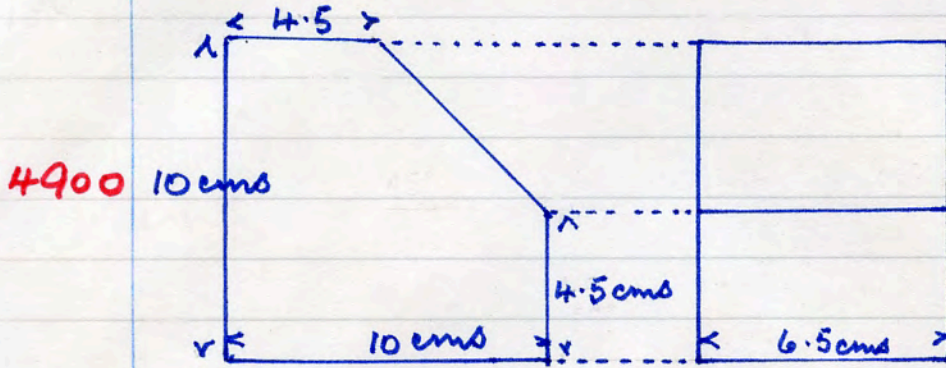 4.5
4900 10 cms
4.5 cms
10 cms 6.5 cms